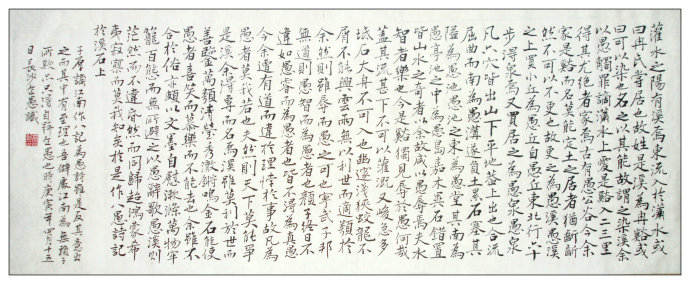 灌水之陽有溪焉東流入於瀟水或
曰冉氏嘗居也故姓是溪為冉溪或
曰可以染也名之以其能故謂之染溪余
以愚觸罪謫瀟水上愛是溪入二三里
得其尤絕者家焉古有愚公谷今余
家是溪而名莫能定土之居者猶齗齗
然不可以不更也故更之為愚溪愚溪
之上買小丘為愚丘自愚丘東北行六十
步得泉焉又買居之為愚泉愚泉
凡六穴皆出山下平地蓋上出也合流
屈曲而南為愚溝遂負土累石塞其
隘為愚池愚池之東為愚堂其南為
愚亭池之中為愚島嘉木異石錯置
皆山水之奇者以余故咸以愚辱焉夫水
智者樂也今是溪獨見辱於愚何哉
蓋其流甚下不可以灌溉又峻急多
坻石大舟不可入也幽邃淺狹蛟龍不
屑不能興雲雨無以利世而適類於
余然則雖辱而愚之可也寧武子邦
無道則愚智而為愚者也顏子終日不
違如愚睿而為愚者也皆不得為真愚
今余遭有道而違於理悖於事故凡為
愚者莫我若也夫然則天下莫能爭
是溪余得專而名焉溪雖莫利於世而
善鑒萬類清瑩秀澈鏘鳴金石能使
愚者喜笑眷慕樂而不能去也余雖不
合於俗亦頗以文墨自慰漱滌萬物牢
籠百態而無所避之以愚辭歌愚溪則
茫然而不違昏然而同歸超鴻蒙混希
夷寂寥而莫我知矣於是作八愚詩記
於溪石上
子厚謫江南作八記為愚詩雖是反其意出
之而其中有至理也吾僻處江南為無
得自號左愚也時庚寅年四月十五
日長沙左愚識